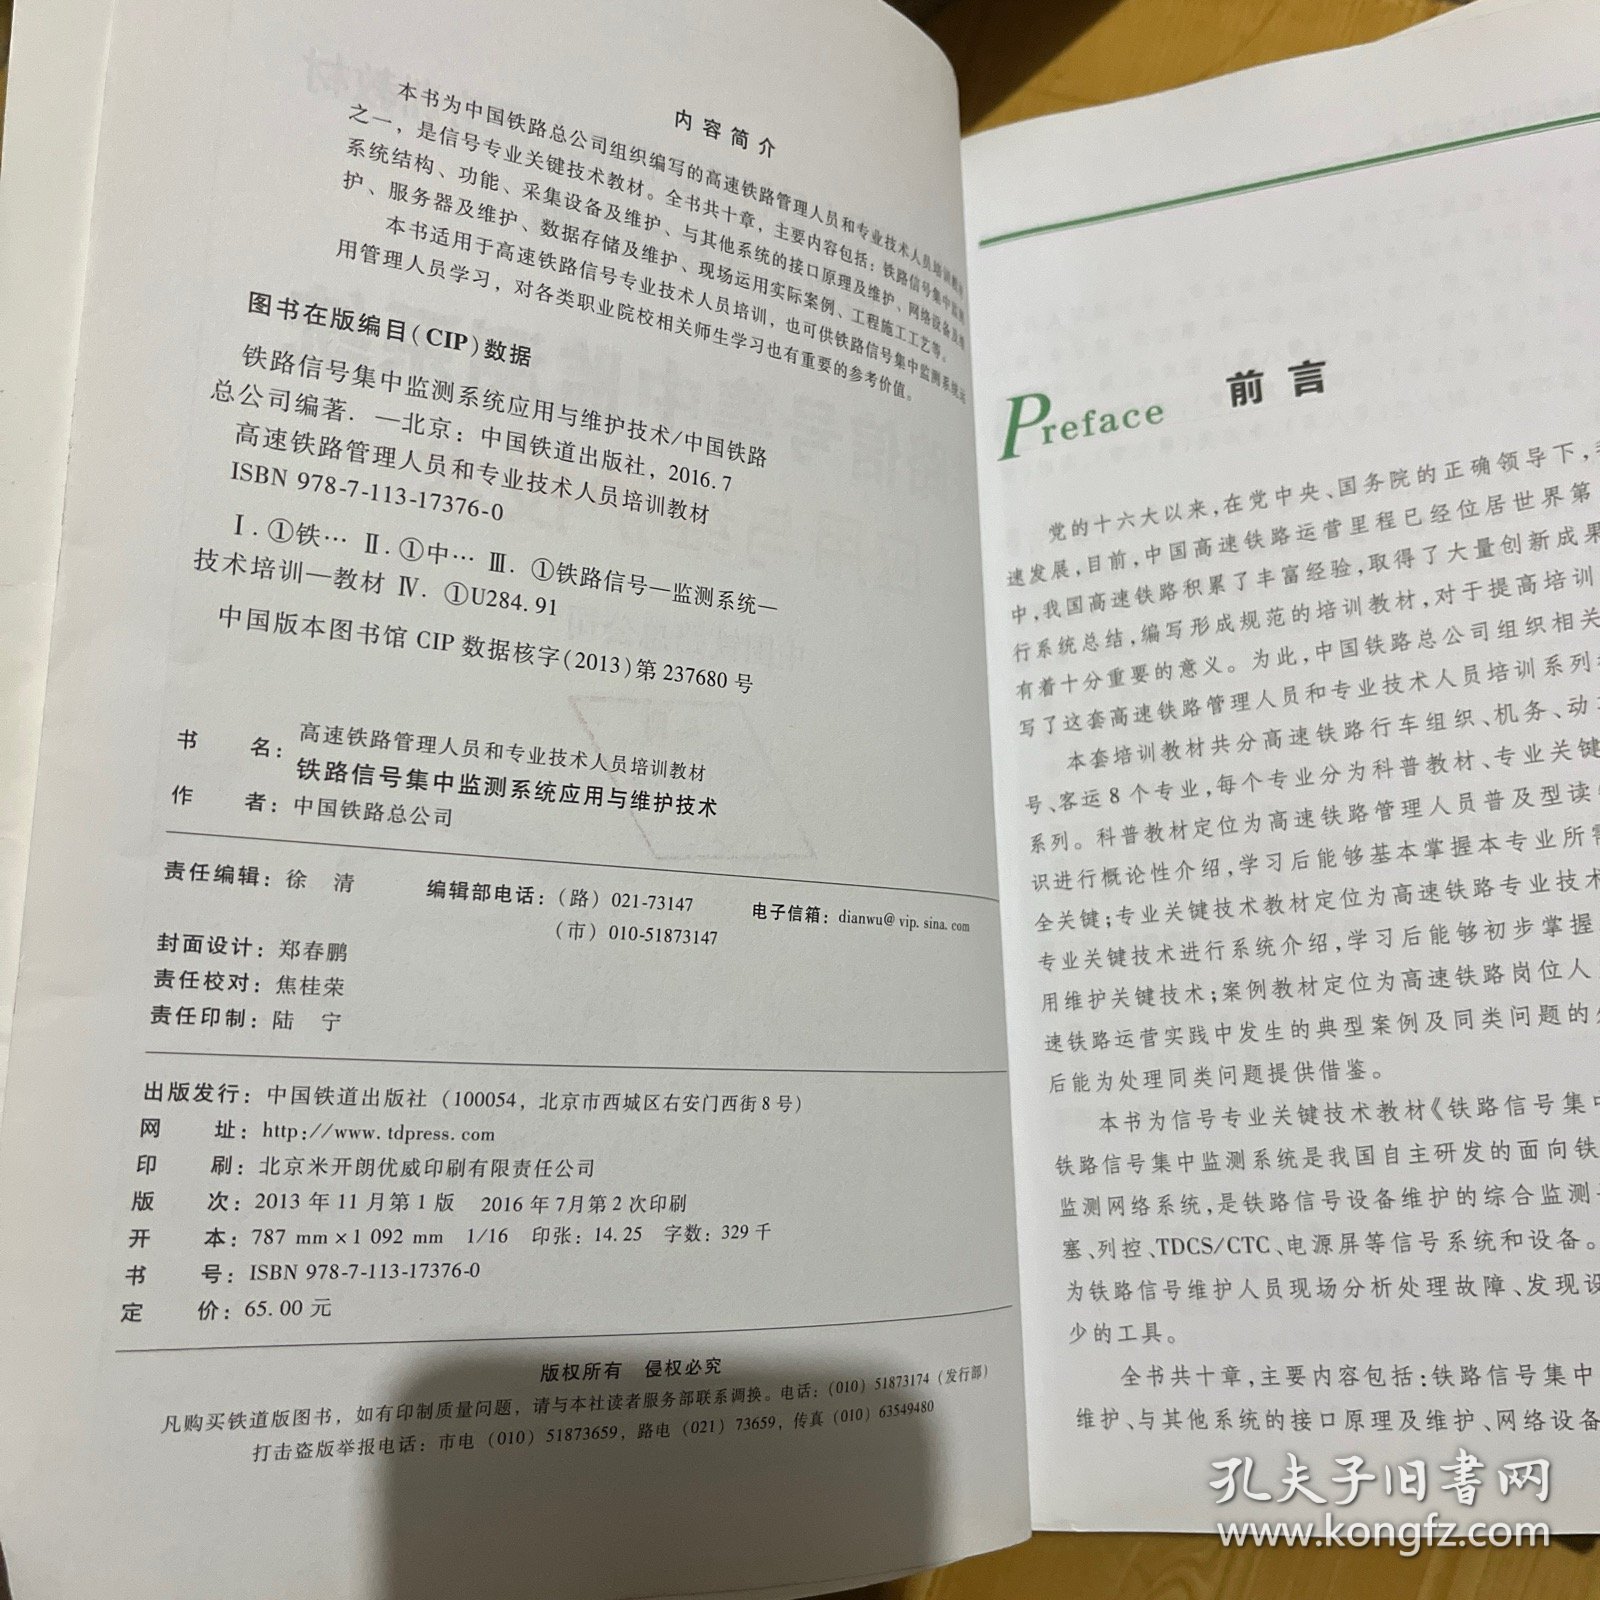 内容简介
本书为中国铁路总公司组织编写的高速铁路管理人员和专业技术人员培训教材
之一，是信号专业关键技术教材。全书共十章，主要内容包括：铁路信号集中监测
系统结构、功能、采集设备及维护、与其他系统的接口原理及维护、网络设备及维
护、服务器及维护、数据存储及维护、现场运用实际案例、工程施工工艺等。
本书适用于高速铁路信号专业技术人员培训，也可供铁路信号集中监测系统运
用管理人员学习，对各类职业院校相关师生学习也有重要的参考价值。
图书在版编目(CIP)数据
铁路信号集中监测系统应用与维护技术/中国铁路
总公司编著．—北京：中国铁道出版社，2016.7
高速铁路管理人员和专业技术人员培训教材
ISBN 978-7-113-17376-0
Ⅰ.①铁… Ⅱ.①中… Ⅲ.①铁路信号—监测系统—
技术培训—教材 Ⅳ.①U284.91
中国版本图书馆 CIP 数据核字(2013)第 237680 号
书 名：高速铁路管理人员和专业技术人员培训教材
铁路信号集中监测系统应用与维护技术
作 者：中国铁路总公司
责任编辑：徐 清 编辑部电话：（路）021-73147 电子信箱：dianwu@vip.sina.com
（市）010-51873147
封面设计：郑春鹏
责任校对：焦桂荣
责任印制：陆 宁
出版发行：中国铁道出版社（100054，北京市西城区右安门西街8号）
网 址：http://www.tdpress.com
印 刷：北京米开朗优威印刷有限责任公司
版 次：2013年11月第1版 2016年7月第2次印刷
开 本：787 mm×1 092 mm 1/16 印张：14.25 字数：329千
书 号：ISBN 978-7-113-17376-0
定 价：65.00元
版权所有 侵权必究
凡购买铁道版图书，如有印制质量问题，请与本社读者服务部联系调换。电话：（010）51873174（发行部）
打击盗版举报电话：市电（010）51873659，路电（021）73659，传真（010）63549480
Preface 前言
党的十六大以来，在党中央、国务院的正确领导下，
速发展，目前，中国高速铁路运营里程已经位居世界第
中，我国高速铁路积累了丰富经验，取得了大量创新成果
行系统总结，编写形成规范的培训教材，对于提高培训
有着十分重要的意义。为此，中国铁路总公司组织相关
写了这套高速铁路管理人员和专业技术人员培训系列
本套培训教材共分高速铁路行车组织、机务、动
号、客运8个专业，每个专业分为科普教材、专业关键
系列。科普教材定位为高速铁路管理人员普及型读
识进行概论性介绍，学习后能够基本掌握本专业所需
全关键；专业关键技术教材定位为高速铁路专业技术
专业关键技术进行系统介绍，学习后能够初步掌握
用维护关键技术；案例教材定位为高速铁路岗位人
速铁路运营实践中发生的典型案例及同类问题的
后能为处理同类问题提供借鉴。
本书为信号专业关键技术教材《铁路信号集中
铁路信号集中监测系统是我国自主研发的面向铁
监测网络系统，是铁路信号设备维护的综合监测
塞、列控、TDCS/CTC、电源屏等信号系统和设备。
为铁路信号维护人员现场分析处理故障、发现设
少的工具。
全书共十章，主要内容包括：铁路信号集中
维护、与其他系统的接口原理及维护、网络设备
孔夫子旧书网
www.kongfz.com